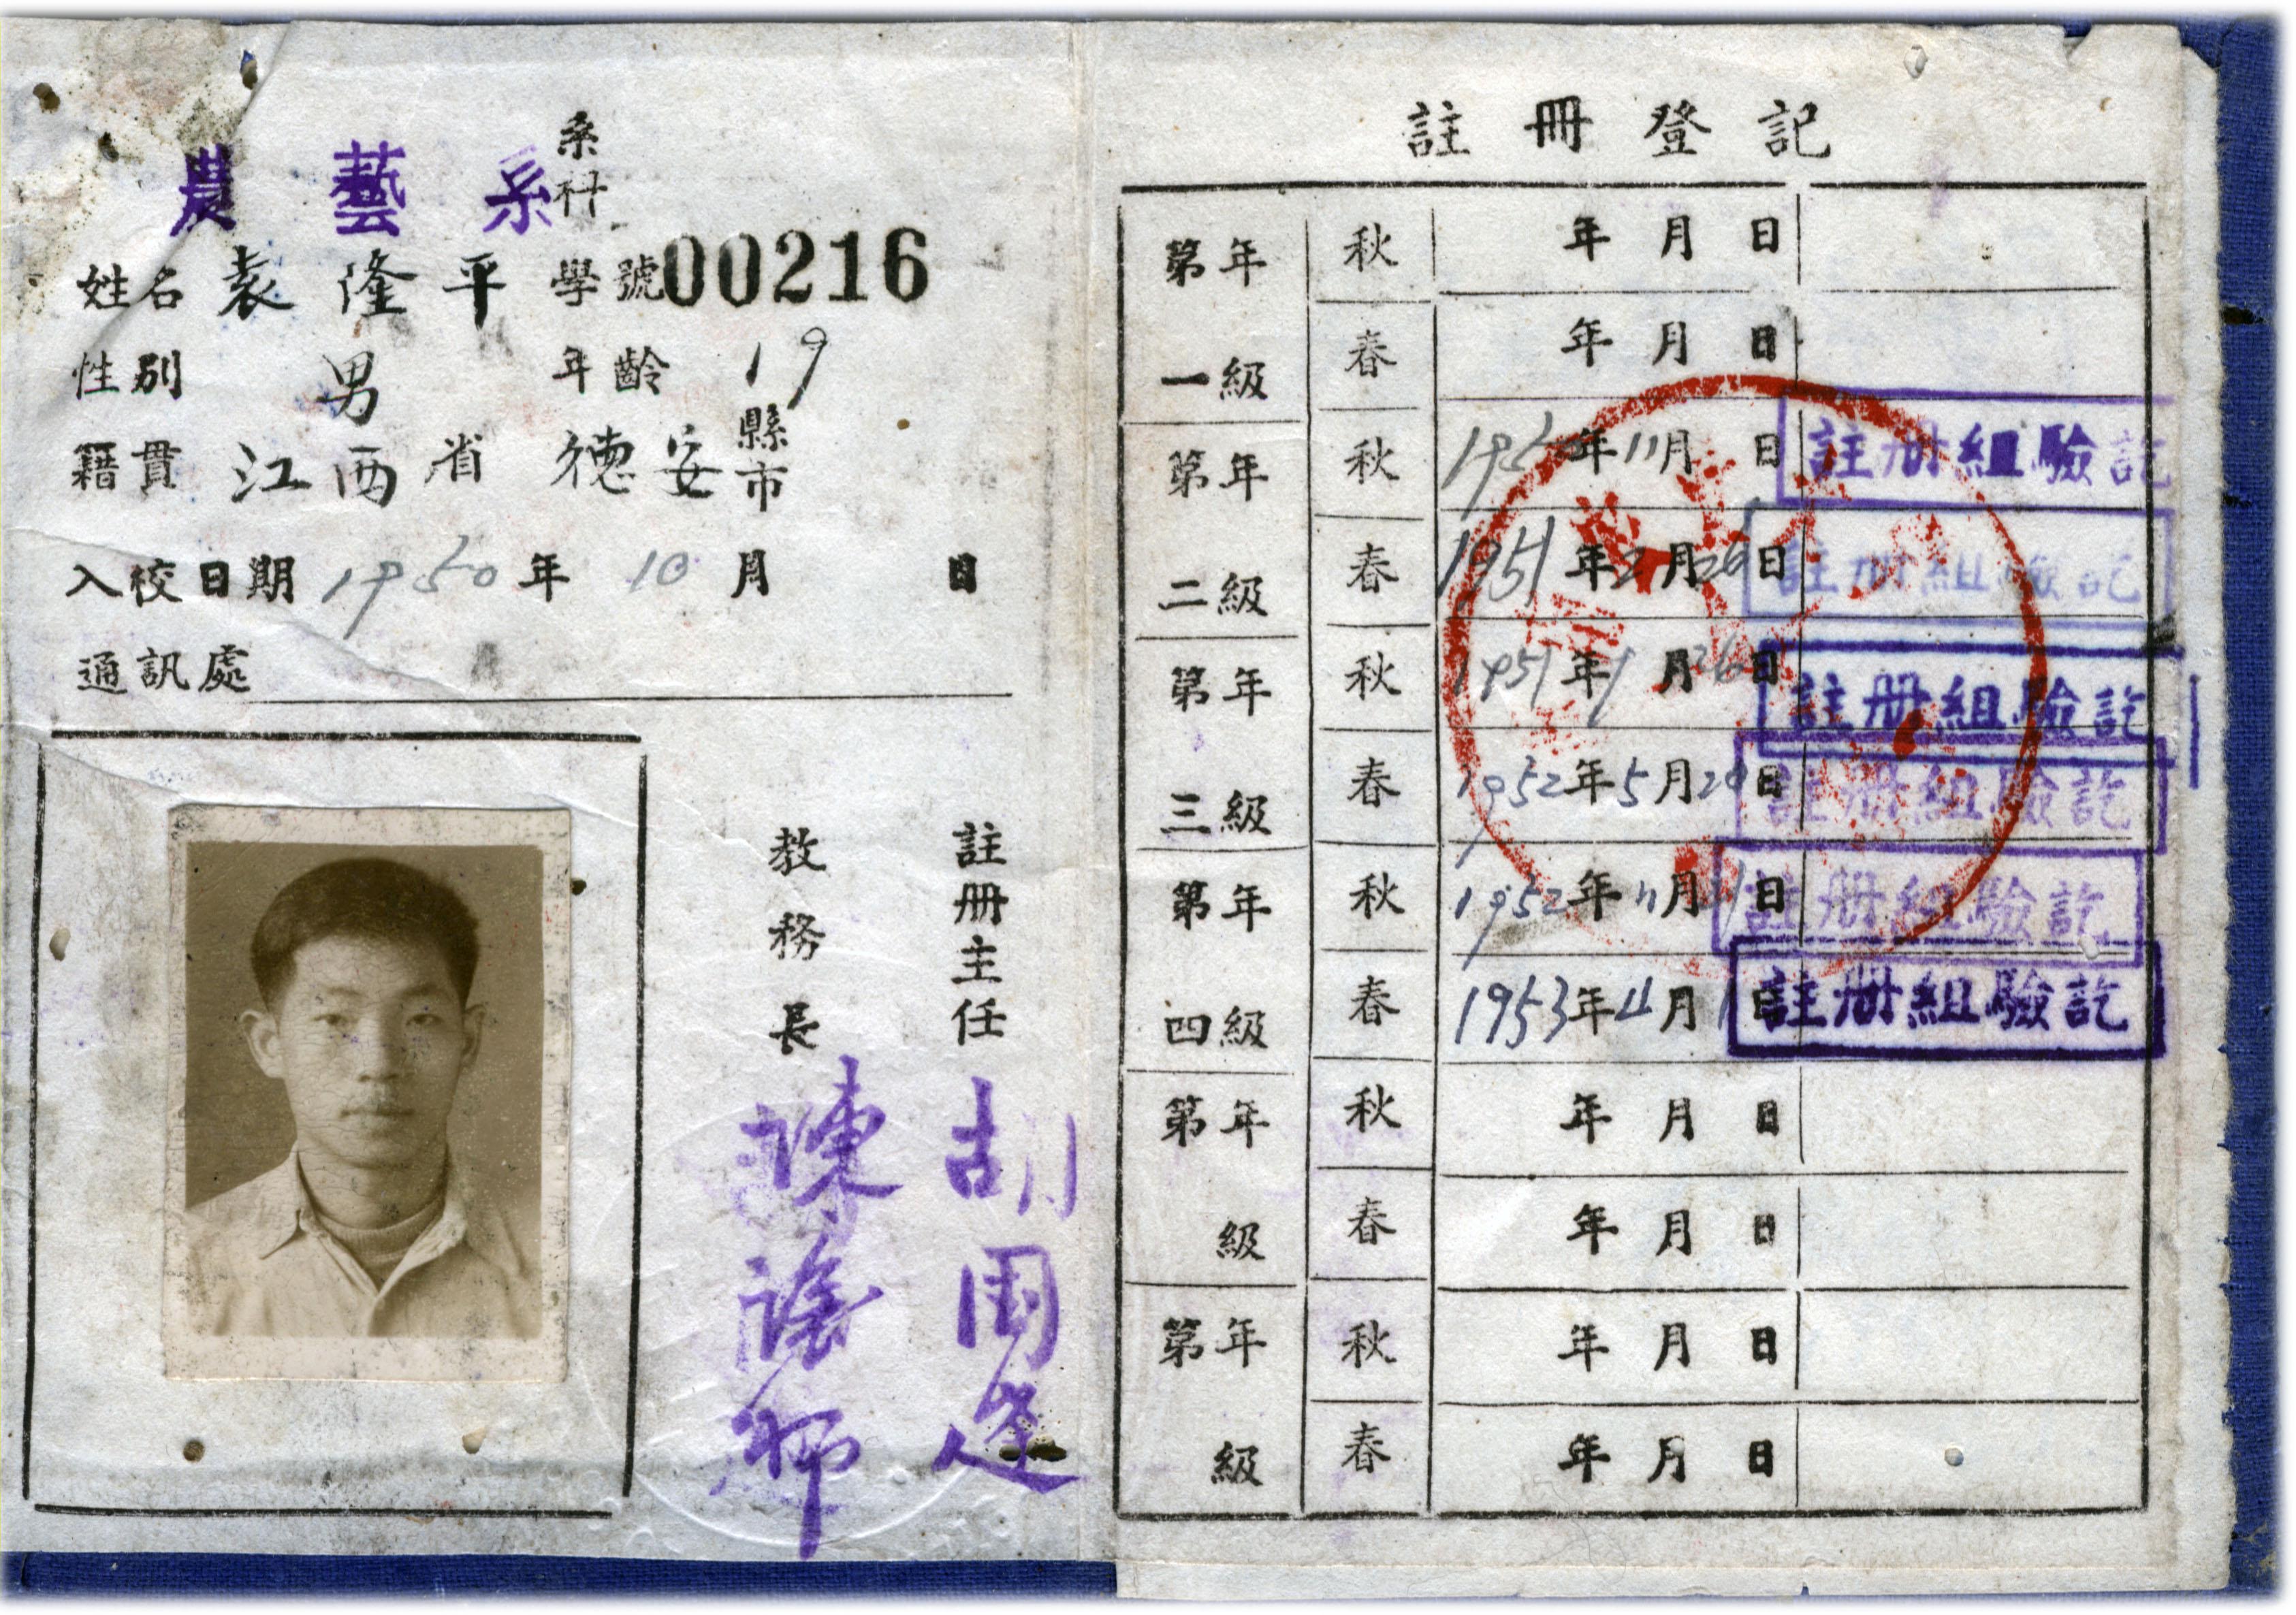 農藝系 系科
姓名 袁隆平 學號 00216
性別 男 年齡 19
籍貫 江西省 德安 縣市
入校日期 1950年 10月 日
通訊處
教務長
註册主任 胡
註冊登記
第一年級 秋 年 月 日
春 年 月 日
第二年級 秋 1950年11月 日 註册組驗訖
春 1951年2月26日 註册組驗訖
第三年級 秋 1951年9月26日 註册組驗訖
春 1952年5月 日 註册組驗訖
第四年級 秋 1952年11月 日 註册組驗訖
春 1953年4月1日 註册組驗訖
第 年級 秋 年 月 日
春 年 月 日
第 年級 秋 年 月 日
春 年 月 日